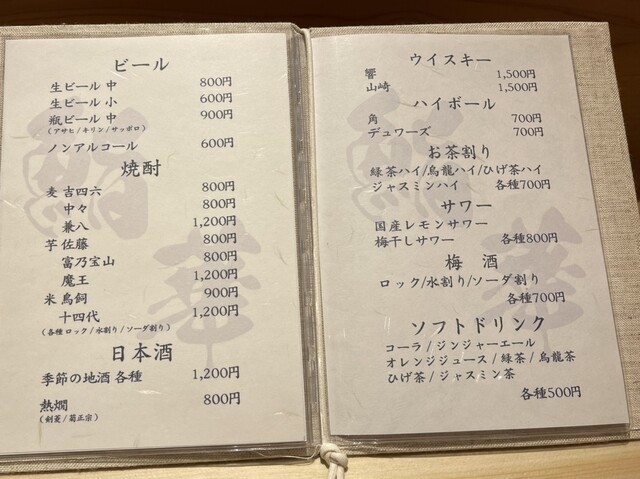 ビール
生ビール 中 800円
生ビール 小 600円
瓶ビール 中 900円
(アサヒ/キリン/サッポロ)
ノンアルコール 600円
焼酎
麦 吉四六 800円
中々 800円
兼八 1,200円
芋 佐藤 800円
富乃宝山 800円
魔王 1,200円
米 鳥飼 900円
十四代 1,200円
(各種 ロック/水割り/ソーダ割り)
日本酒
季節の地酒 各種 1,200円
熱燗 800円
(剣菱/菊正宗)
ウイスキー
響 1,500円
山崎 1,500円
ハイボール
角 700円
デュワーズ 700円
お茶割り
緑茶ハイ/烏龍ハイ/ひげ茶ハイ
ジャスミンハイ 各種700円
サワー
国産レモンサワー
梅干しサワー 各種800円
梅 酒
ロック/水割り/ソーダ割り
各種700円
ソフトドリンク
コーラ / ジンジャーエール
オレンジジュース / 緑茶 / 烏龍茶
ひげ茶 / ジャスミン茶
各種500円
鮨
華
鮨
華